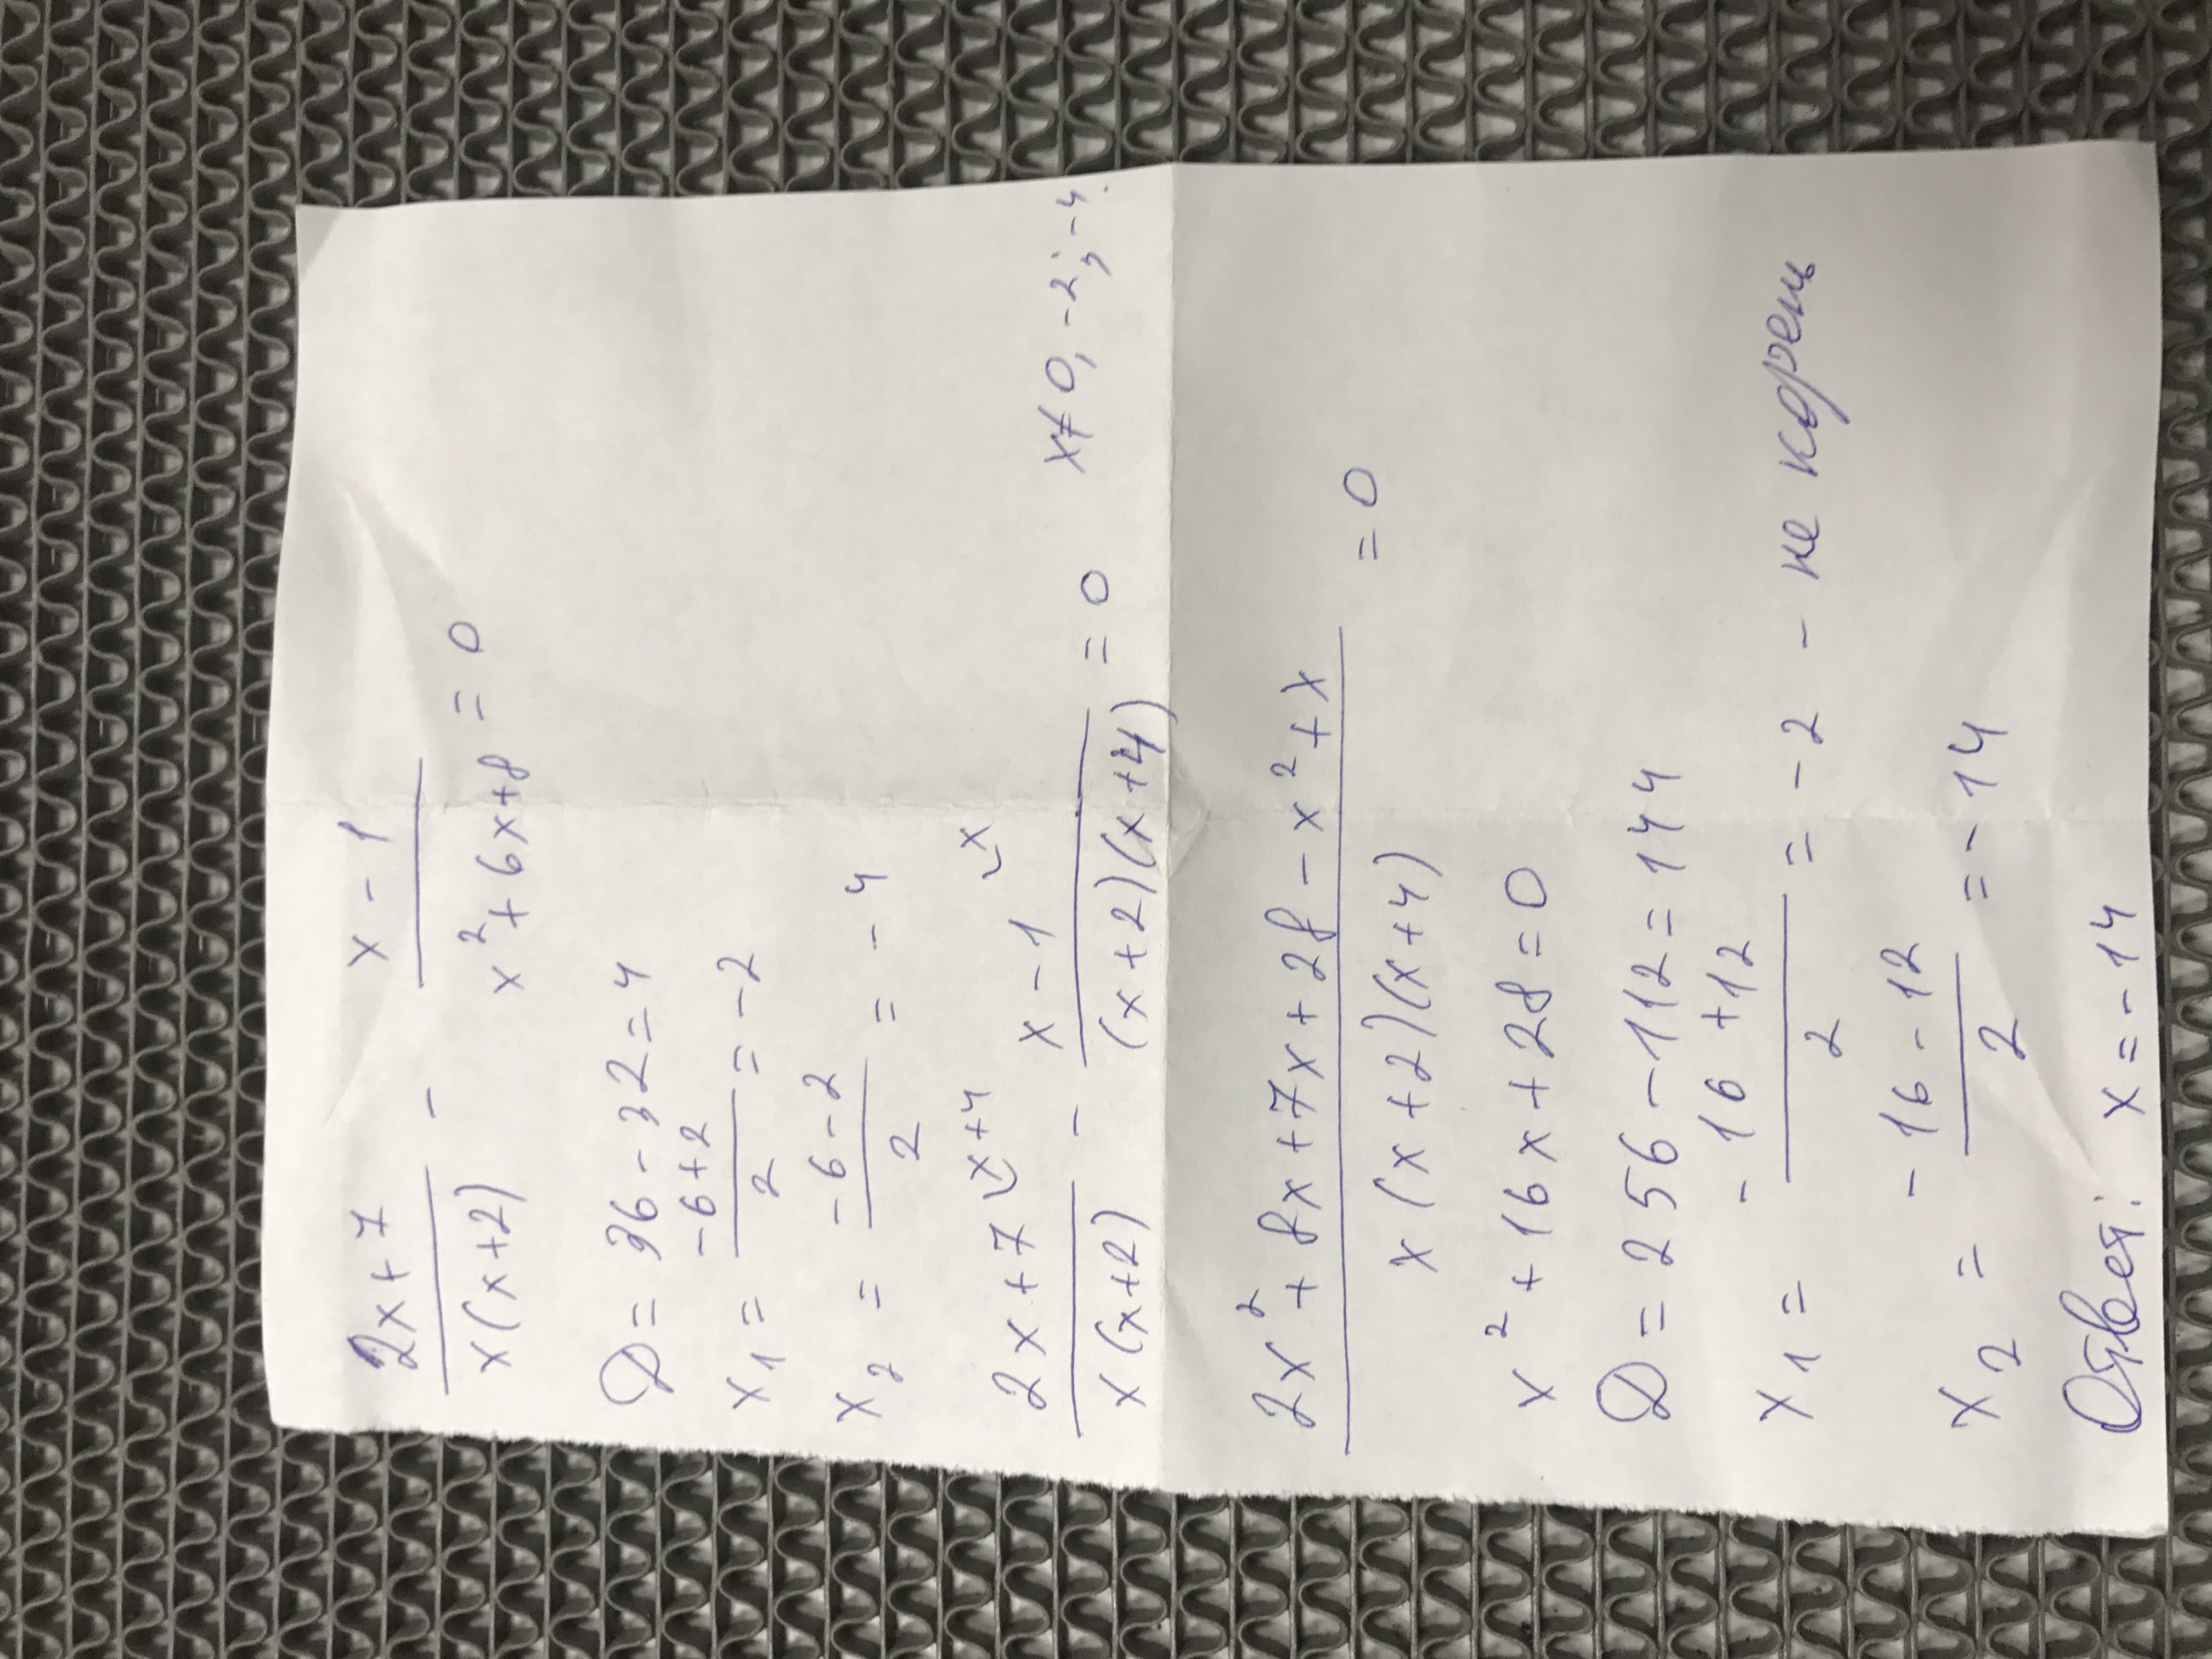 2x+7 / x(x+2) - x-1 / x²+6x+8 = 0
D = 36-32=4
x₁ = -6+2 / 2 = -2
x₂ = -6-2 / 2 = -4
2x+7 ⌣x+4 / x(x+2) - x-1 ⌣x / (x+2)(x+4) = 0 x≠0,-2;-4.
2x²+8x+7x+28-x²+x / x(x+2)(x+4) = 0
x²+16x+28=0
D = 256-112=144
x₁ = -16+12 / 2 = -2 - не корень
x₂ = -16-12 / 2 = -14
Ответ: x=-14